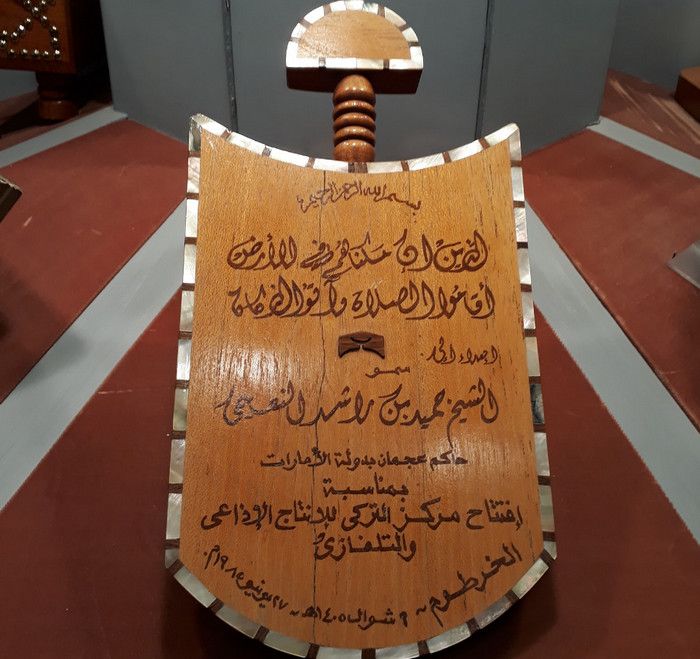 بسم الله الرحمن الرحيم
الذين ان مكناهم في الأرض
أقاموا الصلاة وآتوا الزكاة
إهداء الى
سمو
الشيخ حميد بن راشد النعيمي
حاكم عجمان بدولة الأمارات
بمناسبة
إفتتاح مركز التركى للإنتاج الإذاعى
والتلفازى
الخرطوم - ٩ شوال ١٤٠٥هـ - ٢٧ يونيو ١٩٨٥م.